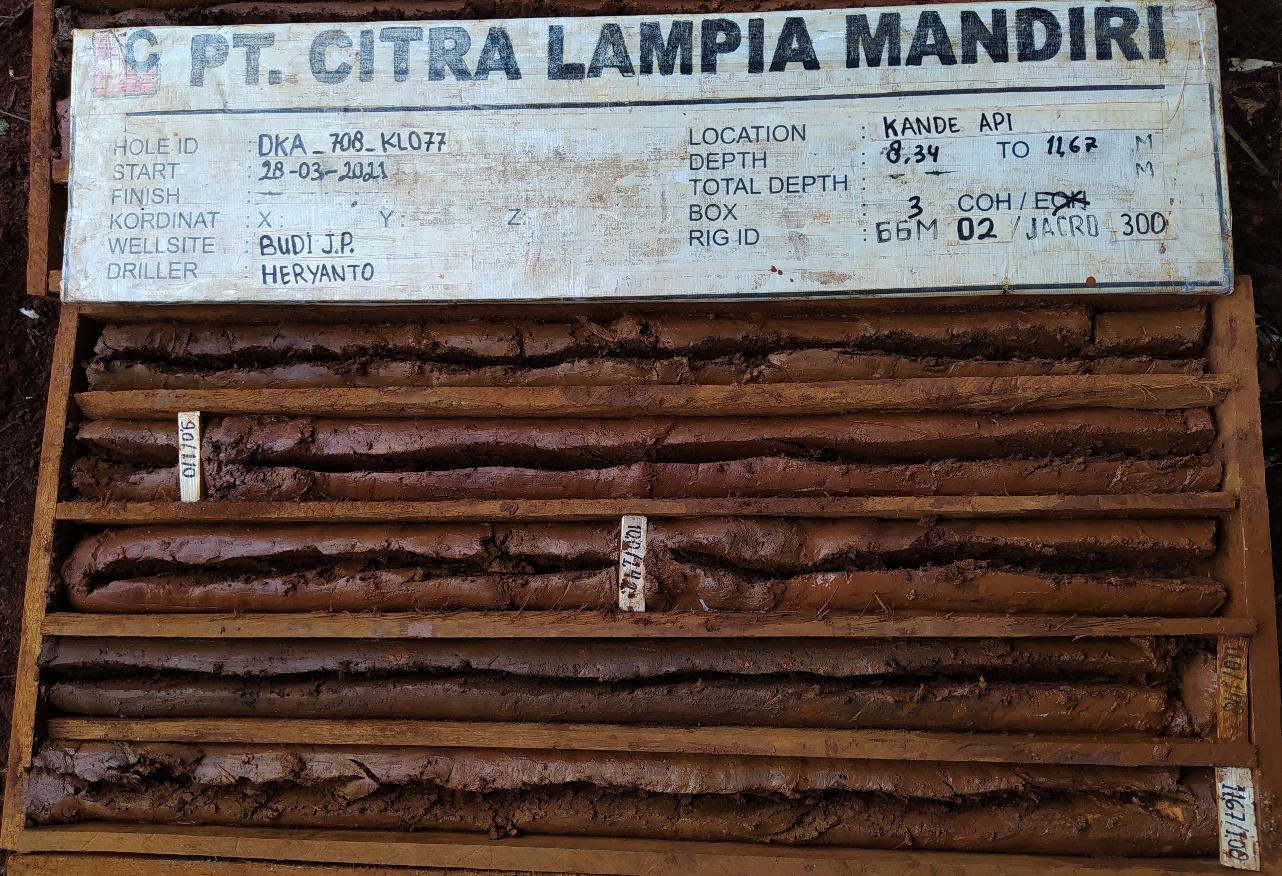 C PT. CITRA LAMPIA MANDIRI
HOLE ID : DKA_708_KL077
START : 28-03-2021
FINISH : –
KORDINAT : X: Y: Z:
WELLSITE : BUDI J.P.
DRILLER : HERYANTO
LOCATION : KANDE API
DEPTH : 8,34 TO 11,67 M
TOTAL DEPTH : – – M
BOX : 3 COH / EOH
RIG ID : GGM 02 / JACRO 300
9,0/1,10
11,67/100